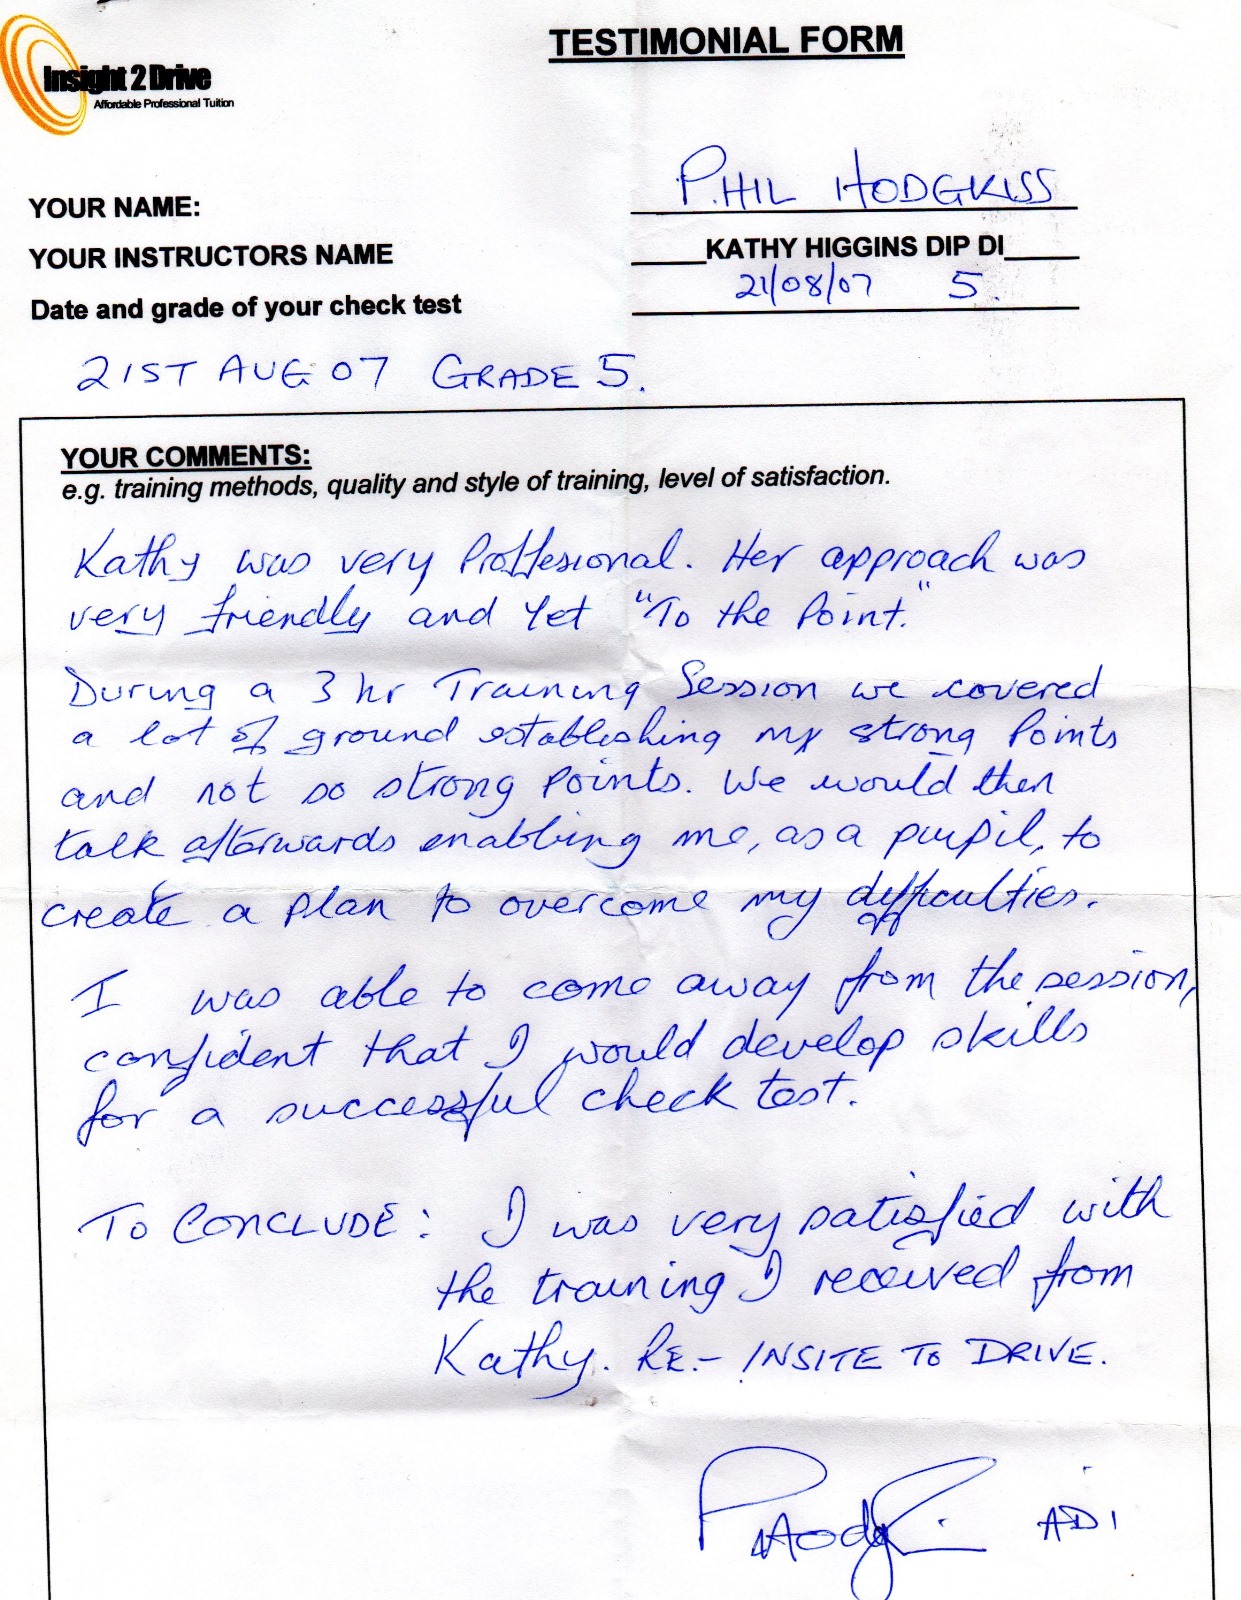 TESTIMONIAL FORM
Insight 2 Drive
Affordable Professional Tuition
YOUR NAME: PHIL HODGKISS
YOUR INSTRUCTORS NAME KATHY HIGGINS DIP DI
Date and grade of your check test 21/08/07 5.
21ST AUG 07 GRADE 5.
YOUR COMMENTS:
e.g. training methods, quality and style of training, level of satisfaction.
Kathy was very Proffesional. Her approach was
very friendly and Yet "To the Point."
During a 3 hr Training Session we covered
a lot of ground establishing my strong Points
and not so strong Points. We would then
talk afterwards enabling me, as a pupil, to
create a plan to overcome my difficulties.
I was able to come away from the session,
confident that I would develop skills
for a successful check test.
TO CONCLUDE: I was very satisfied with
the training I received from
Kathy. RE.- INSITE TO DRIVE.
P Hodgkiss ADI